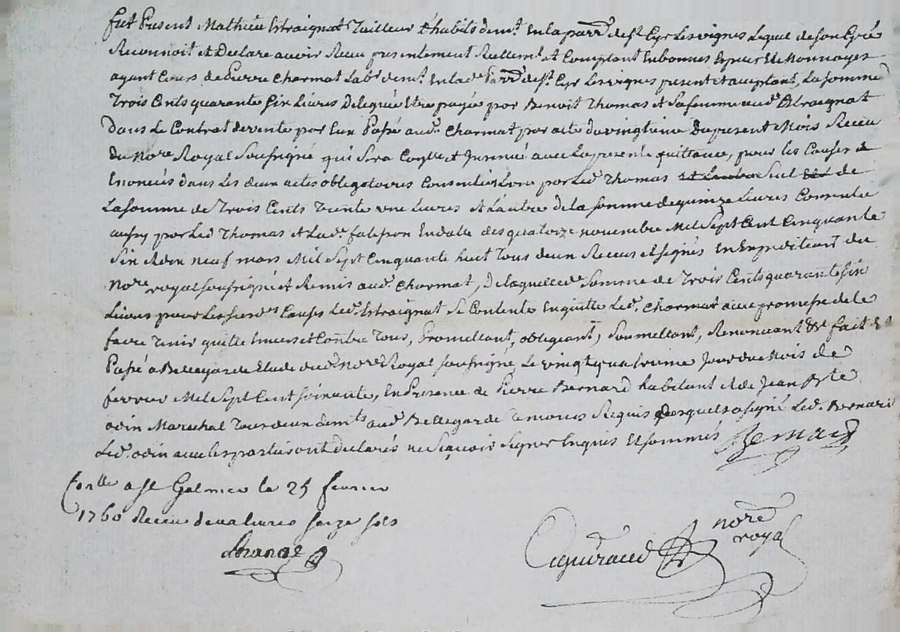 fut Present Mathieu Estraignat Tailleur d'habits demt. en la parr. de st. Cyr Les vignes Lequel de son Gré
Reconnoit et Declare avoir Receu presentement Reellemt. et Comptant En bonnes Especes Et Monnoyes
ayant Cours de Pierre Charmat Labr. demt. En lad. Parr. de st. Cyr Les vignes present et acceptant, La somme
Trois Cents quarante Six Livres deleguée Etre payée par Benoit Thomas et Sa femme aud. Estraignat
Dans Le Contrat de vente par Eux Passé aud. Charmat par acte du vingtieme Du present Mois Receu
du Nore. Royal Soussigné qui Sera et Insinué avec La presente quittance, pour les Causes
Enoncées dans Les deux actes obligatoires Consentis par Led. Thomas de
La somme de Trois Cents Trente une Livres et Lautre de la somme de quinze Livres Consentie
aussy par Led. Thomas et Lad. En datte des quatorze novembre Mil Sept Cent Cinquante
Six et dix neuf mars Mil Sept Cinquante huit Tous deux Receus et signés En Expedition du
Nore. royal soussigné et Remis aud. Charmat, de laquelle de Somme de Trois Cents quarante six
Livres pour Les susd. Causes Led. Estraignat Se Contente En quitte Led. Charmat avec promesse de le
faire Tenir quitte Envers et Contre Tous, Promettant, obligeant, Soumettant, Renoncant &c fait &
Passé a Bellegarde Etude dud. Nore. Royal soussigné Le vingt quatrieme Jour du Mois de
fevrier Mil Sept Cent Soixante, En Presence de Pierre Bernard habitant et de Jean Bte
odin Marechal Tous deux demts. aud. Bellegarde Temoins Requis desquels a signé Led. Bernard
Led. odin avec Les parties ont declarés ne Sçavoir Signer Enquis Et sommés Bernard
Conllé a St Galmier le 25 fevrier
1760 Receu deux livres seize sols
nore
royal